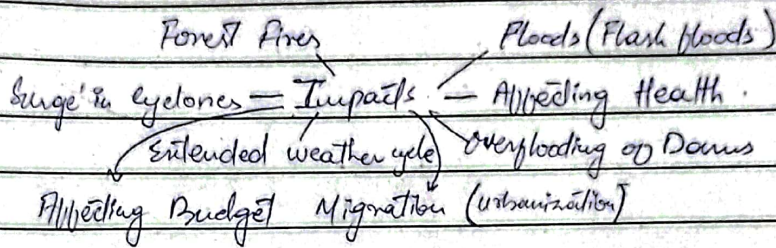 Forest Fires Floods (Flash floods)
Surge in cyclones = Impacts - Affecting Health.
Extended weather cycle Overflooding of Dams
Affecting Budget Migration (urbanization)